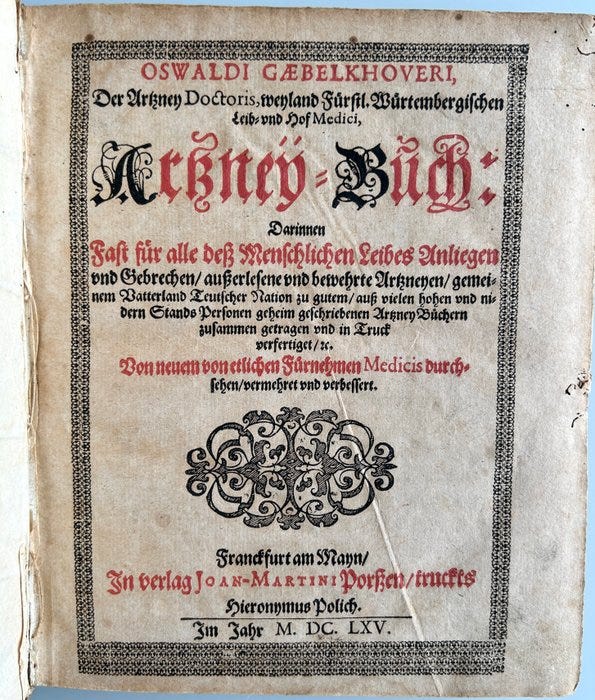 OSWALDI GÆBELKHOVERI,
Der Artzney Doctoris, weyland Fürstl. Würtembergischen
Leib- vnd Hof Medici,
Artzneÿ-Bůch:
Darinnen
Fast für alle deß Menschlichen Leibes Anliegen
vnd Gebrechen/ außerlesene vnd bewehrte Artzneyen/ gemei-
nem Vatterland Teutscher Nation zu gutem/ auß vielen hohen vnd ni-
dern Stands Personen geheim geschriebenen Artzney Büchern
zusammen getragen vnd in Truck
verfertiget/ ꝛc.
Von neuem von etlichen Fürnehmen Medicis durch-
sehen/ vermehret vnd verbessert.
Franckfurt am Mayn/
In verlag JOAN-MARTINI Porßen/ truckts
Hieronymus Polich.
Im Jahr M. DC. LXV.